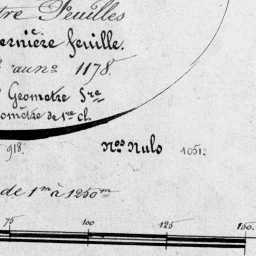 tre Feuilles
ernière feuille.
au nº 1178.
Géometre 1re
omètre de 1re Cl.
918. Nos Nuls 1051.
de 1m à 1250m
75 100 125 150.